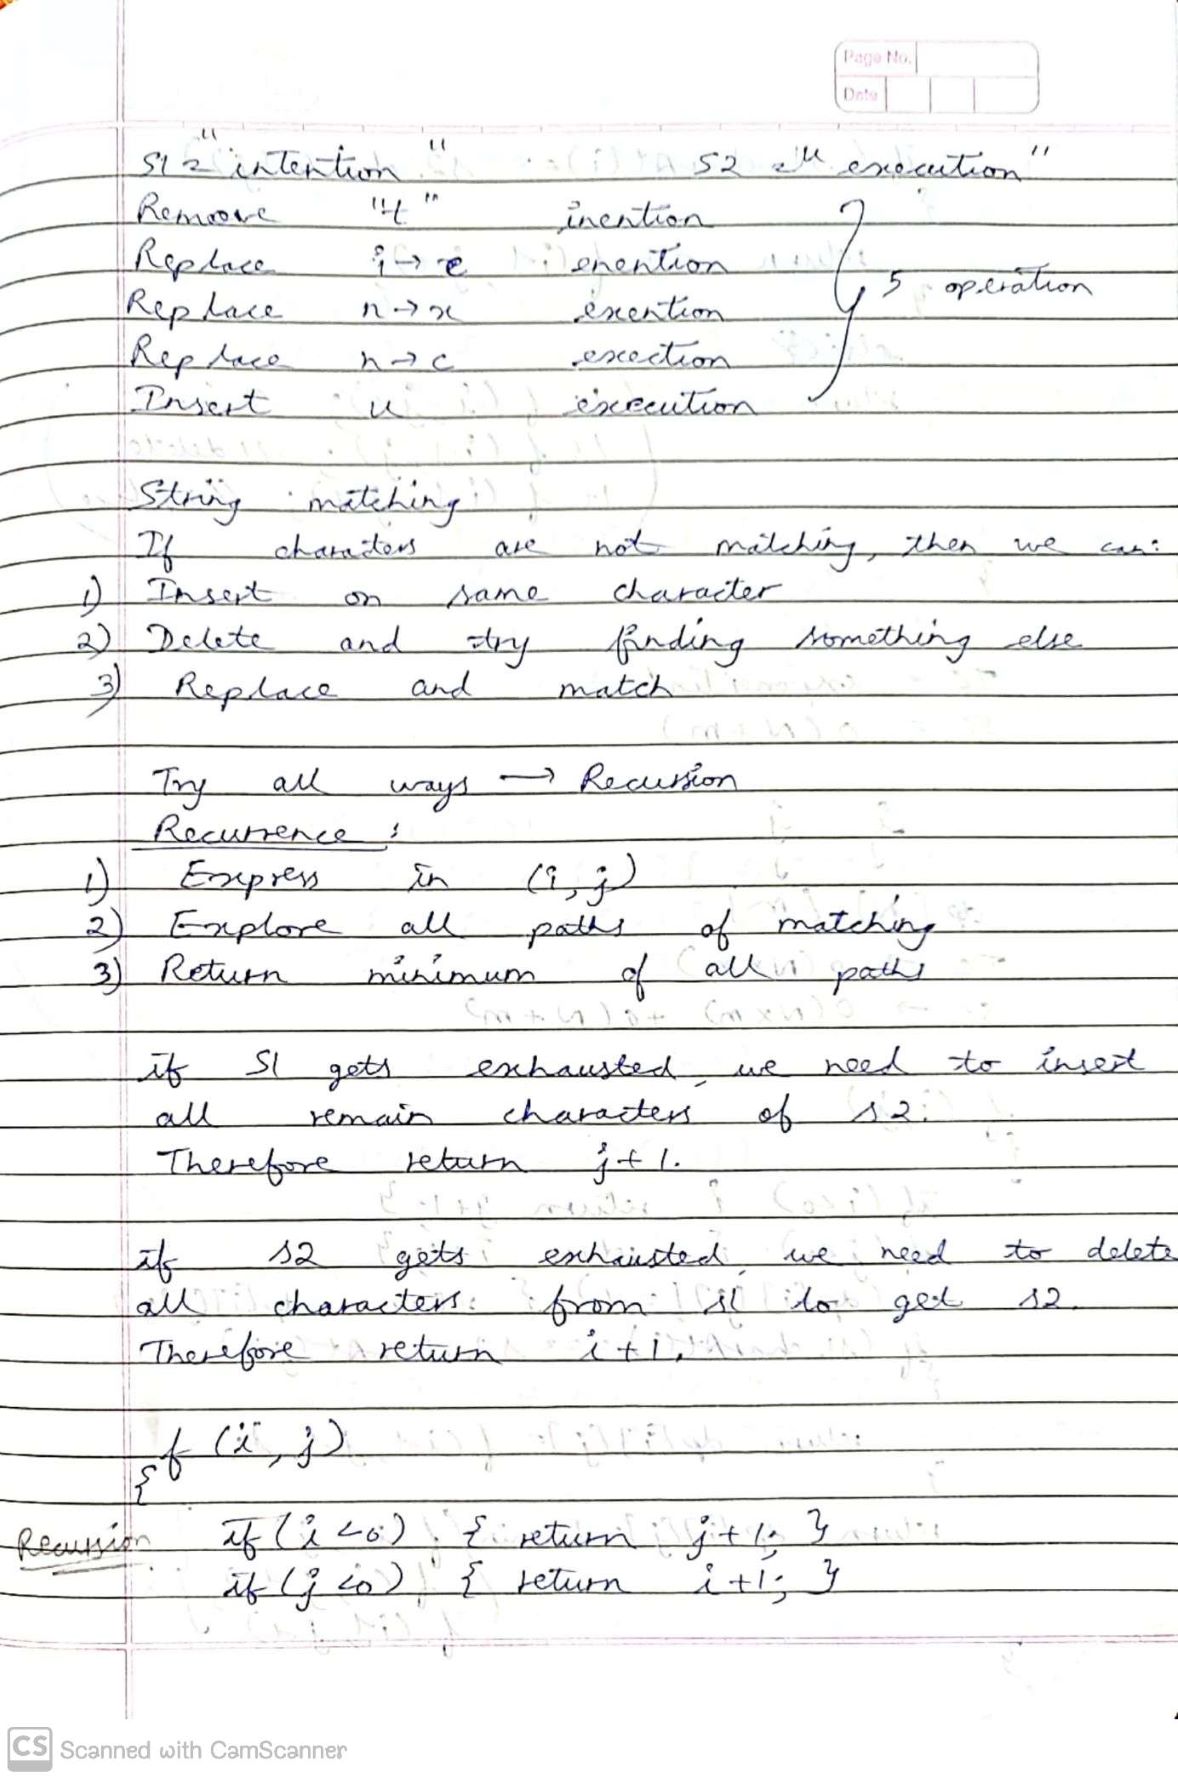 Page No.
Date
S1 = "intention" S2 = "execution"
Remove "t" inention
Replace i → e enention
Replace n → x exention
Replace n → c exection
Insert u execution
5 operation
String matching
If characters are not matching, then we can:
1) Insert on same character
2) Delete and try finding something else
3) Replace and match
Try all ways → Recursion
Recurrence :
1) Express in (i, j)
2) Explore all paths of matching
3) Return minimum of all paths
if S1 gets exhausted, we need to insert
all remain characters of s2.
Therefore return j+1.
if s2 gets exhausted, we need to delete
all characters from s1 to get s2.
Therefore return i+1.
f (i, j)
{
Recursion if (i <0) { return j+1; }
if (j <0) { return i+1; }
CS Scanned with CamScanner